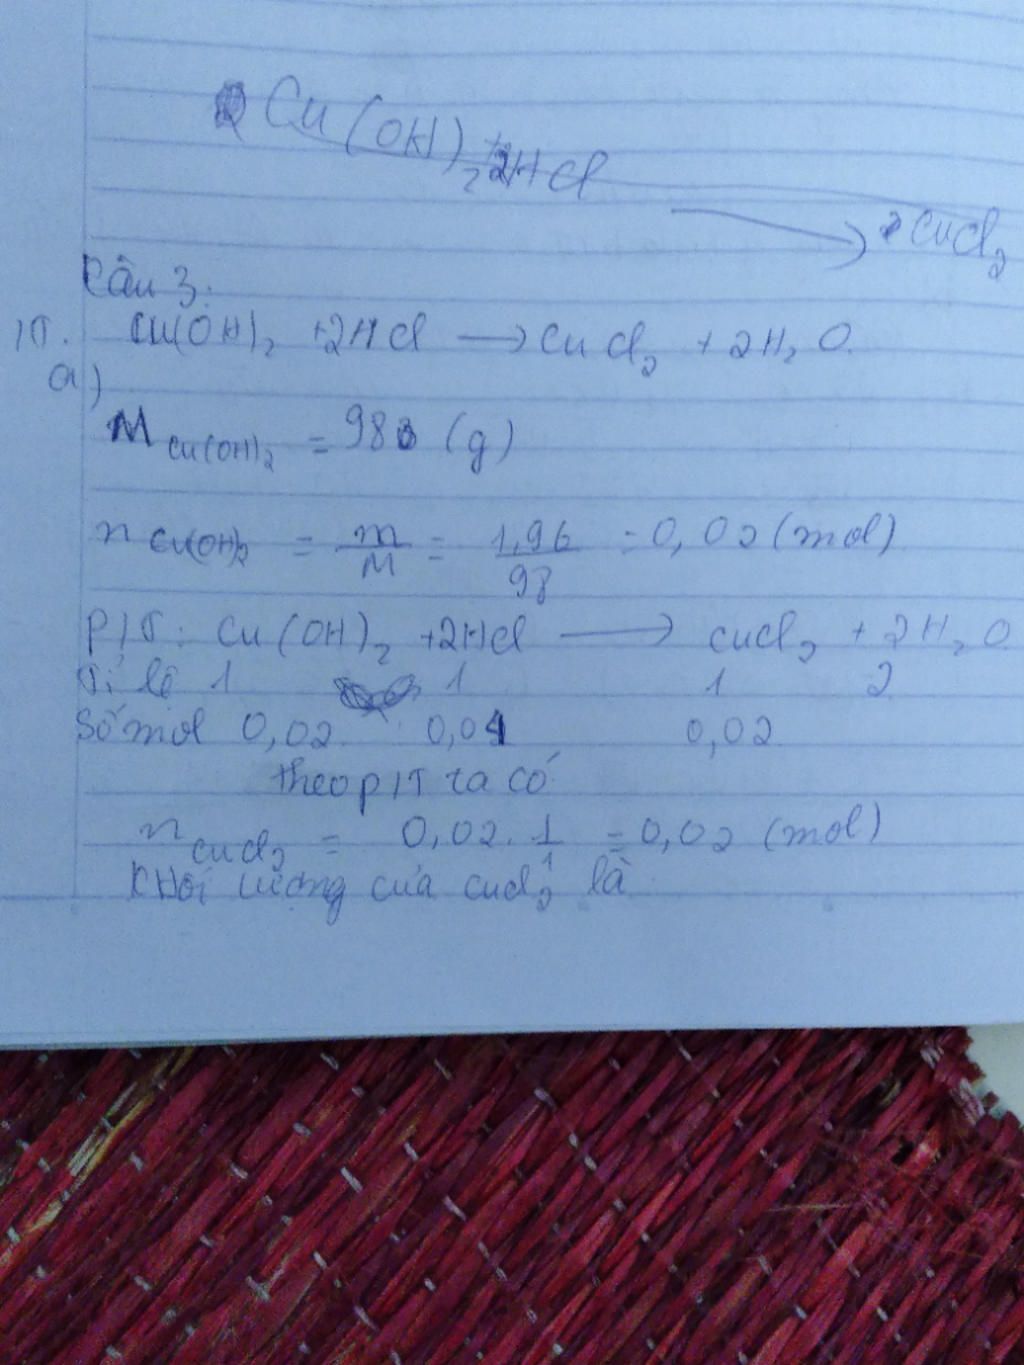 Cu(OH)₂ + 2HCl
→ CuCl₂
Câu 3:
Cu(OH)₂ +2HCl → CuCl₂ + 2H₂O.
a)
M Cu(OH)₂ = 98 (g)
n Cu(OH)₂ = m/M = 1,96/98 = 0,02 (mol)
P/T: Cu(OH)₂ +2HCl → CuCl₂ + 2H₂O
Tỉ lệ 1 1 1 2
Số mol 0,02 0,04 0,02
theo p/T ta có
n CuCl₂ = 0,02. 1/1 = 0,02 (mol)
Khối lượng của CuCl₂ là